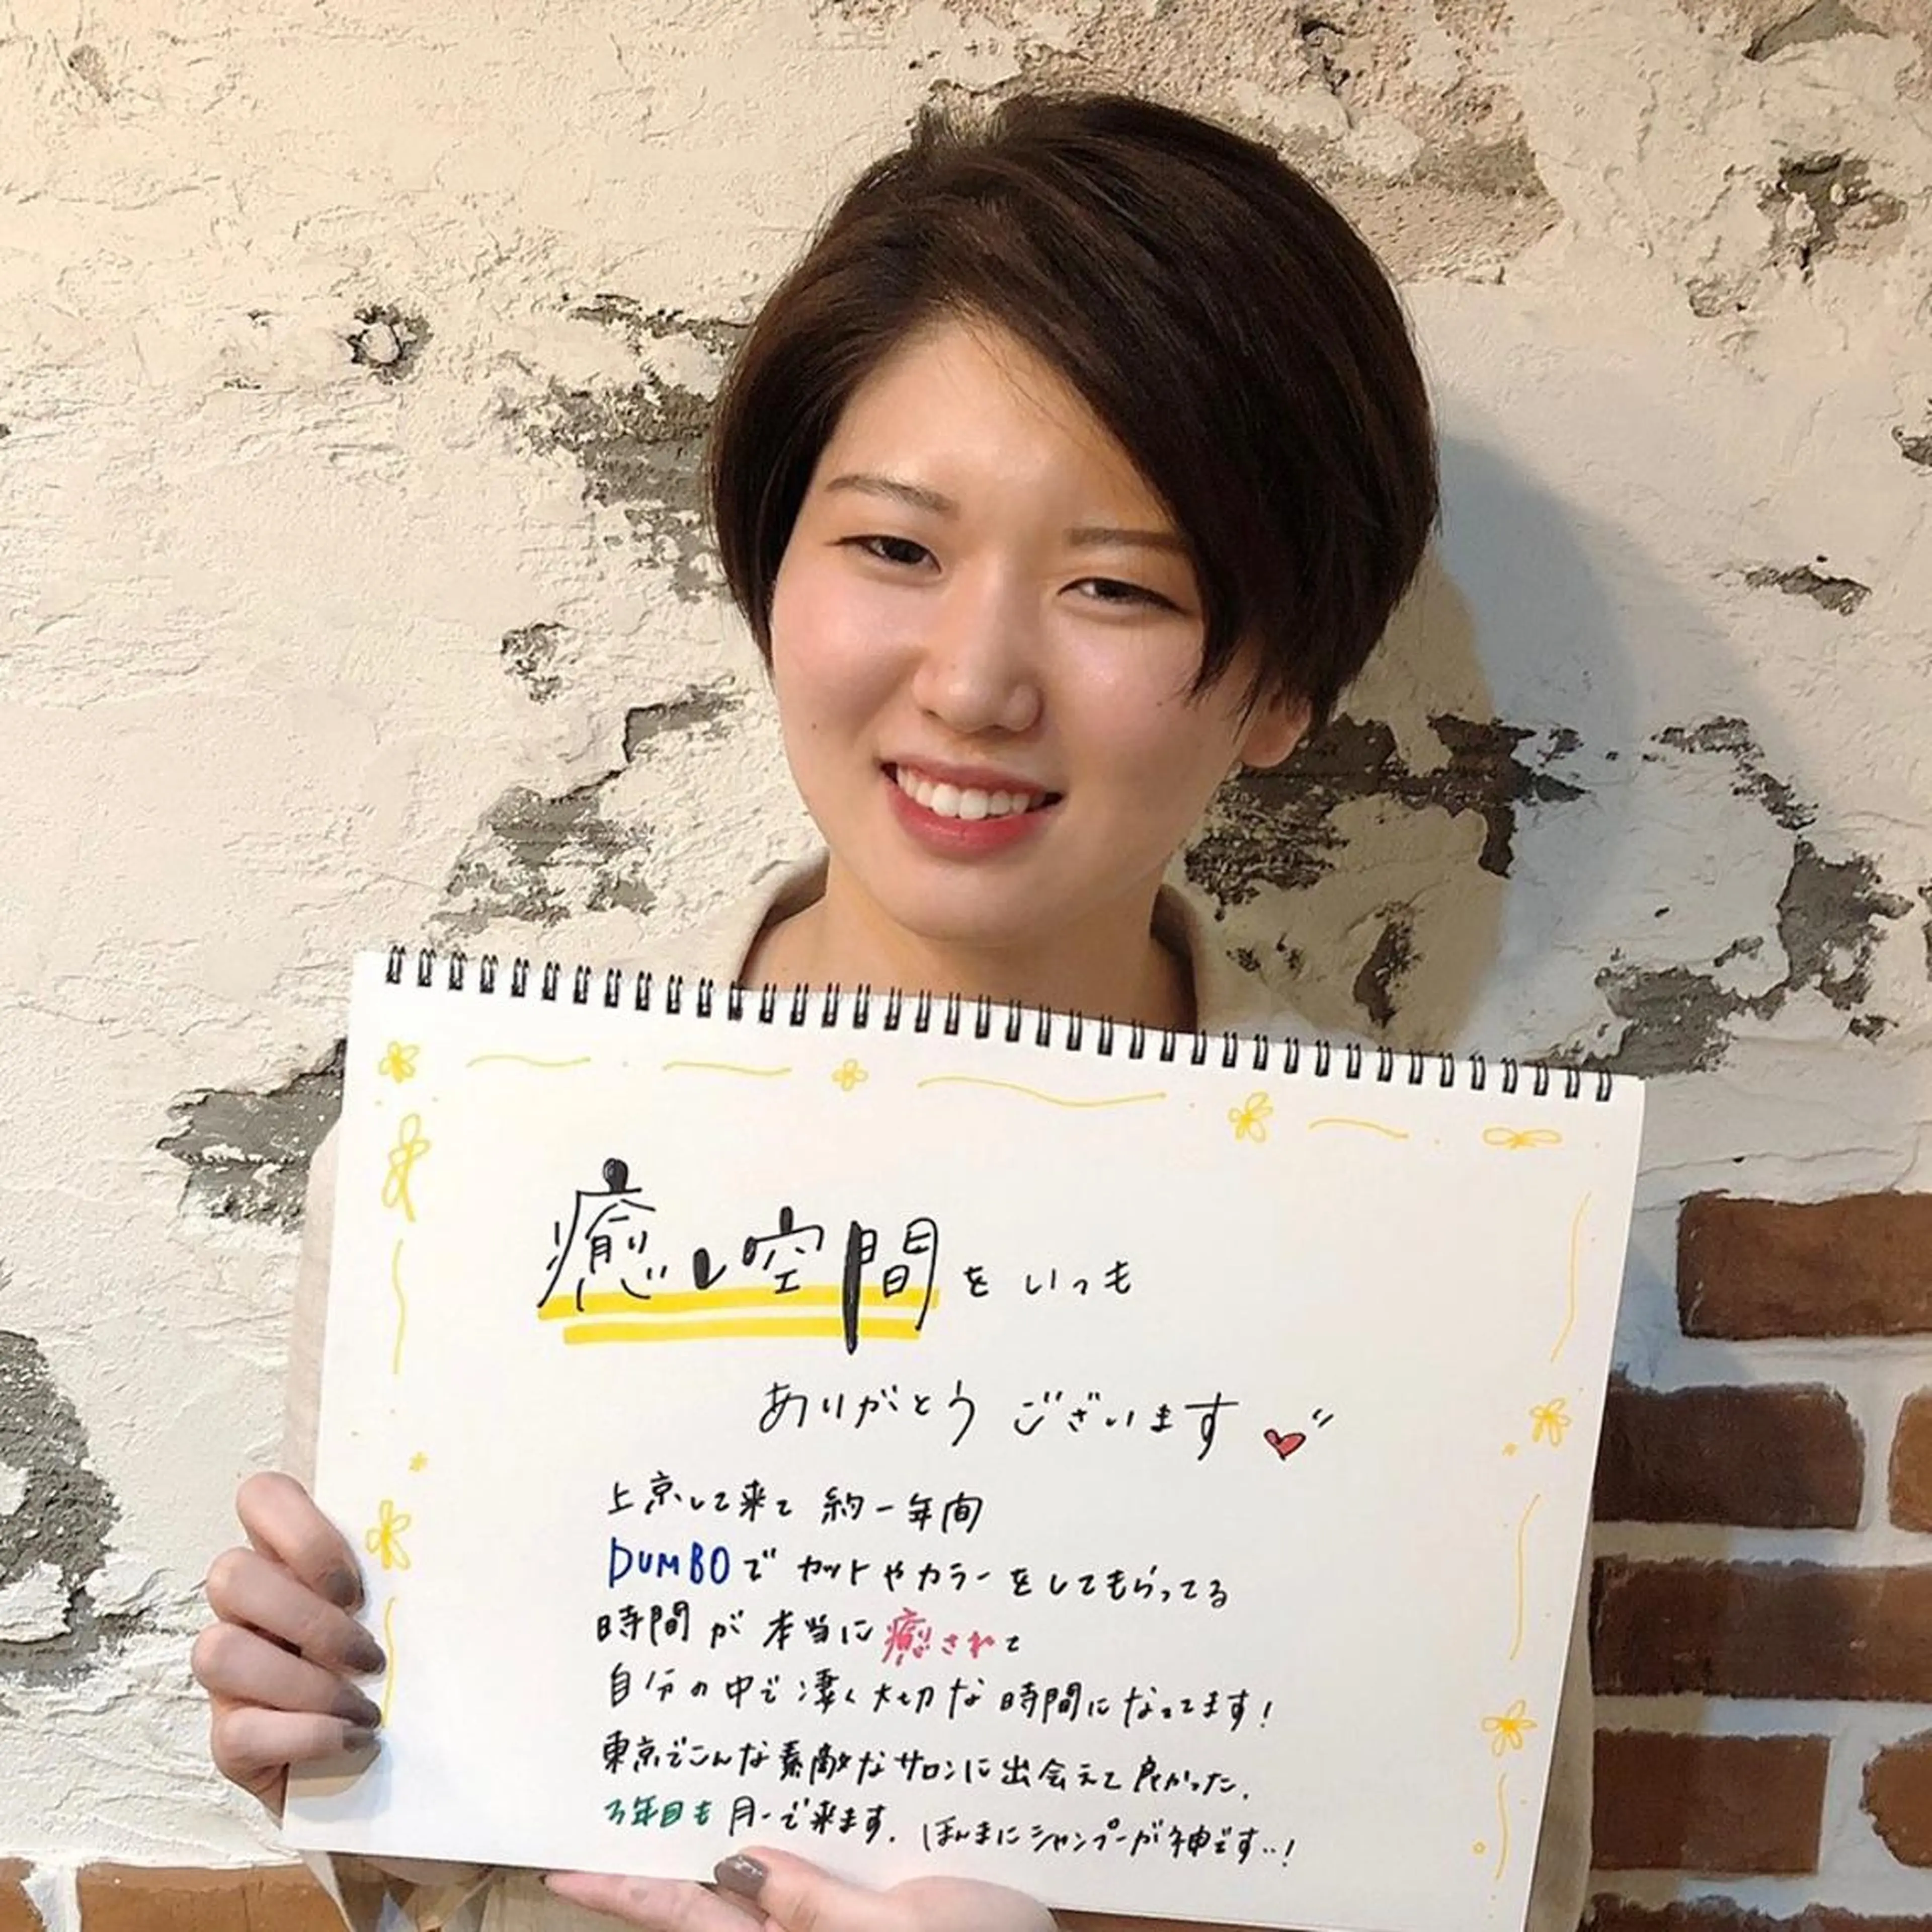 癒し空間をいつも
ありがとうございます
上京して来て約一年間
DUMBOでカットやカラーをしてもらってる
時間が本当に癒されて
自分の中で凄く大切な時間になってます!
東京でこんな素敵なサロンに出会えて良かった.
3年目も月一で来ます. ほんまにシャンプーが神です..!